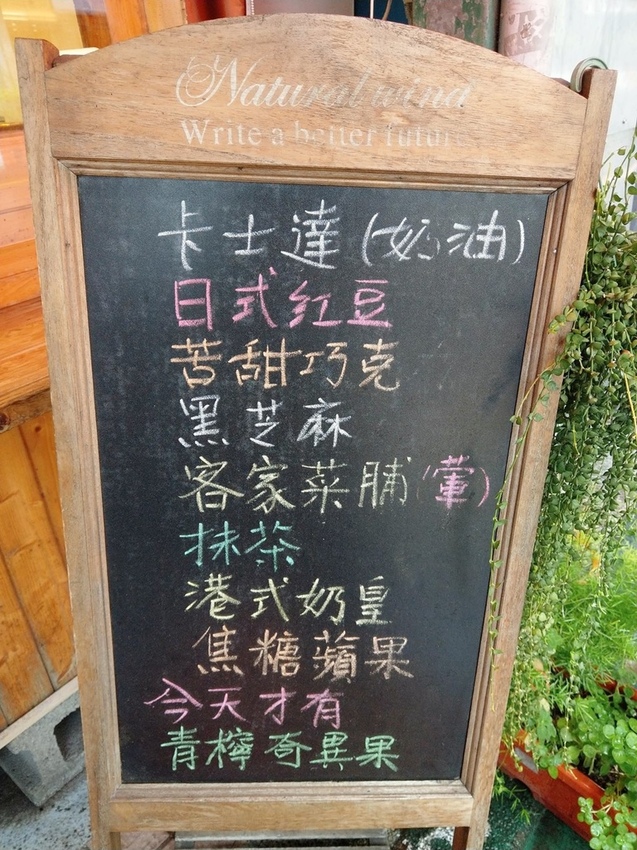 Natural wind
Write a better future
卡士達(奶油)
日式紅豆
苦甜巧克
黑芝麻
客家菜脯(葷)
抹茶
港式奶皇
焦糖蘋果
今天才有
青檸奇異果